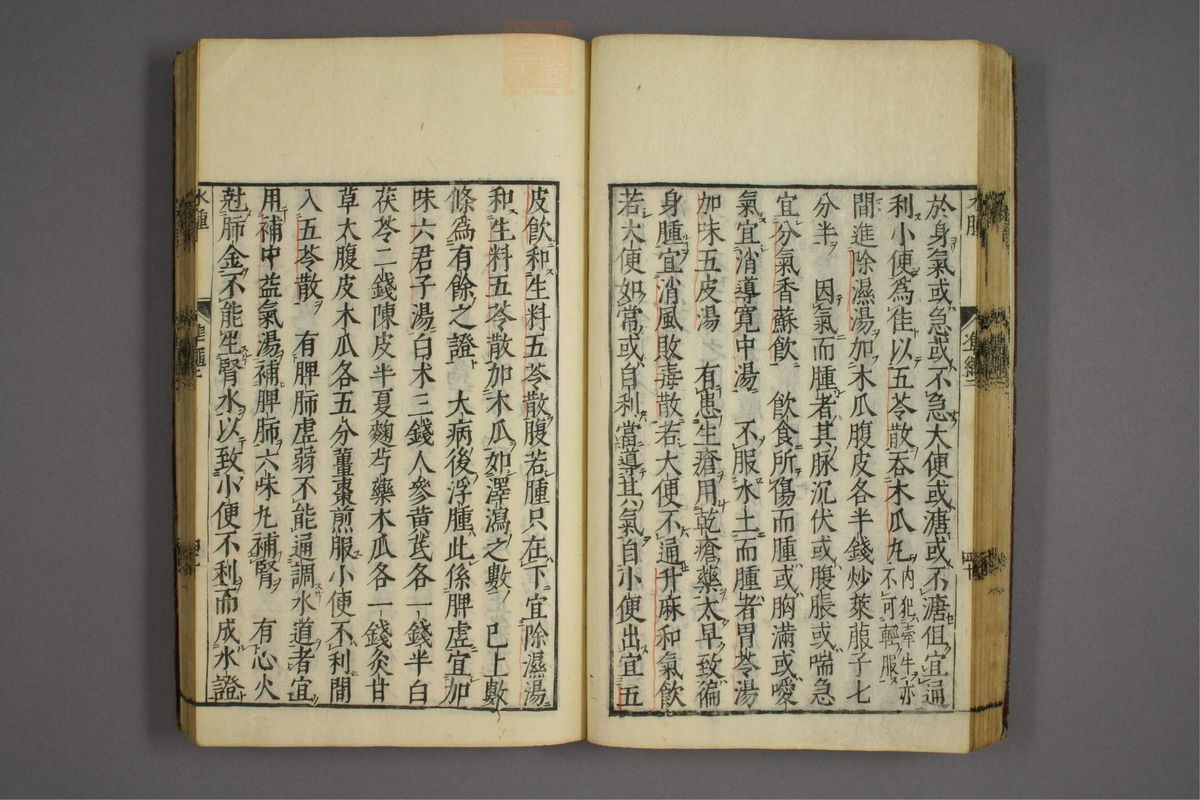 於身氣或急或不急大便或溏或不溏但宜通
利小便爲佳以五苓散吞木瓜丸内犯牽牛亦不可輕服
間進除濕湯加木瓜腹皮各半錢炒萊菔子七
分半　因氣而腫者其脉沉伏或腹脹或喘急
宜分氣香蘇飲　飲食所傷而腫或胸滿或噯
氣宜消導寬中湯　不服水土而腫者胃苓湯
加味五皮湯　有患生瘡用乾瘡藥太早致徧
身腫宜消風敗毒散若大便不通升麻和氣飲
若大便如常或自利當導其氣自小便出宜五
皮飲和生料五苓散腹若腫只在下宜除濕湯
和生料五苓散加木瓜如澤瀉之數　已上數
條爲有餘之證　大病後浮腫此係脾虛宜加
味六君子湯白术三錢人參黃芪各一錢半白
茯苓二錢陳皮半夏麴芍藥木瓜各一錢炙甘
草大腹皮木瓜各五分薑棗煎服小便不利間
入五苓散　有脾肺虛弱不能通調水道者宜
用補中益氣湯補脾肺六味丸補腎　有心火
尅肺金不能生腎水以致小便不利而成水證
水腫